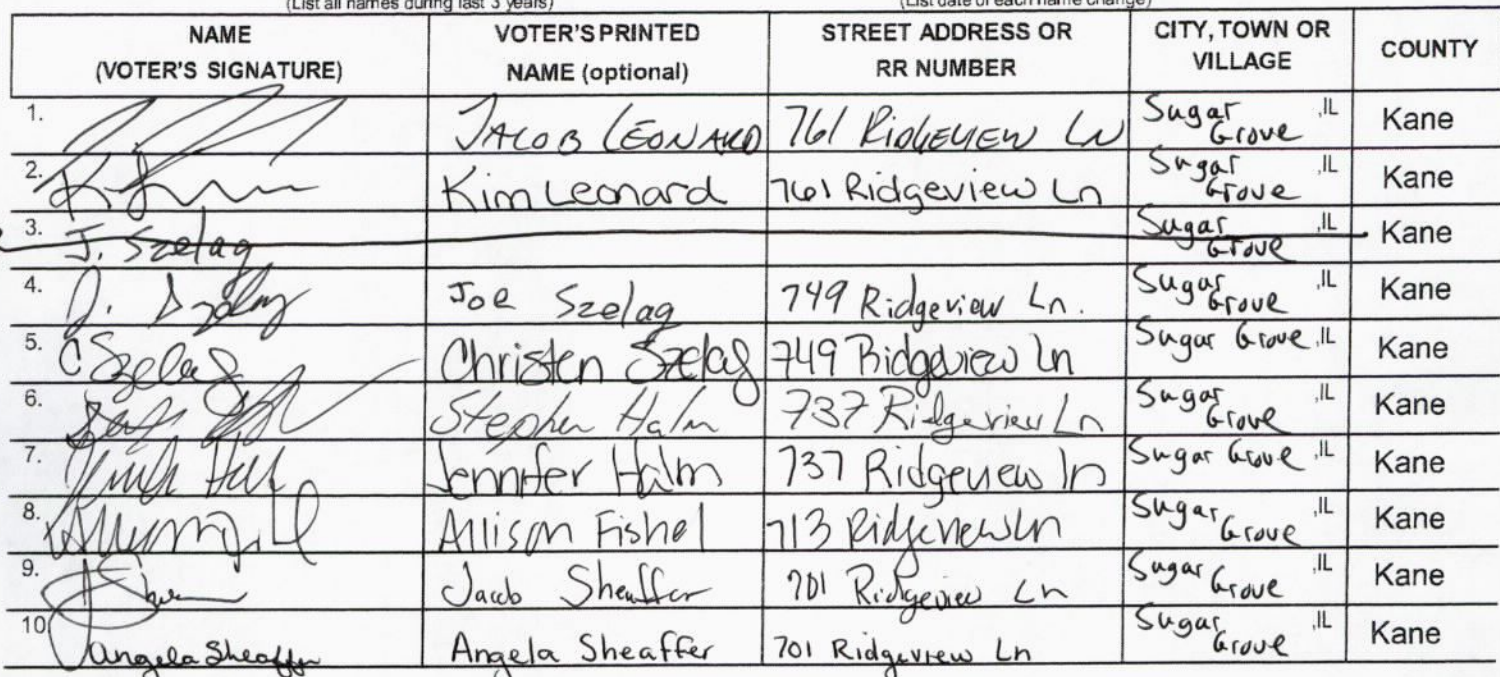 (List all names during last 3 years) (List date of each name change)
NAME (VOTER'S SIGNATURE) VOTER'S PRINTED NAME (optional) STREET ADDRESS OR RR NUMBER CITY, TOWN OR VILLAGE COUNTY
1. JACOB LEONARD 761 RIDGEVIEW LN Sugar Grove ,IL Kane
2. Kim Leonard 761 Ridgeview Ln Sugar Grove ,IL Kane
3. J. Szelag Sugar Grove ,IL Kane
4. J. Szelag Joe Szelag 749 Ridgeview Ln. Sugar Grove ,IL Kane
5. C Szelag Christen Szelag 749 Ridgeview Ln Sugar Grove ,IL Kane
6. Stephen Halm 737 Ridgeview Ln Sugar Grove ,IL Kane
7. Jennifer Halm 737 Ridgeview ln Sugar Grove ,IL Kane
8. Allison Fishel 713 Ridgeview Ln Sugar Grove ,IL Kane
9. Jacob Sheaffer 701 Ridgeview Ln Sugar Grove ,IL Kane
10. Angela Sheaffer Angela Sheaffer 701 Ridgeview Ln Sugar Grove ,IL Kane